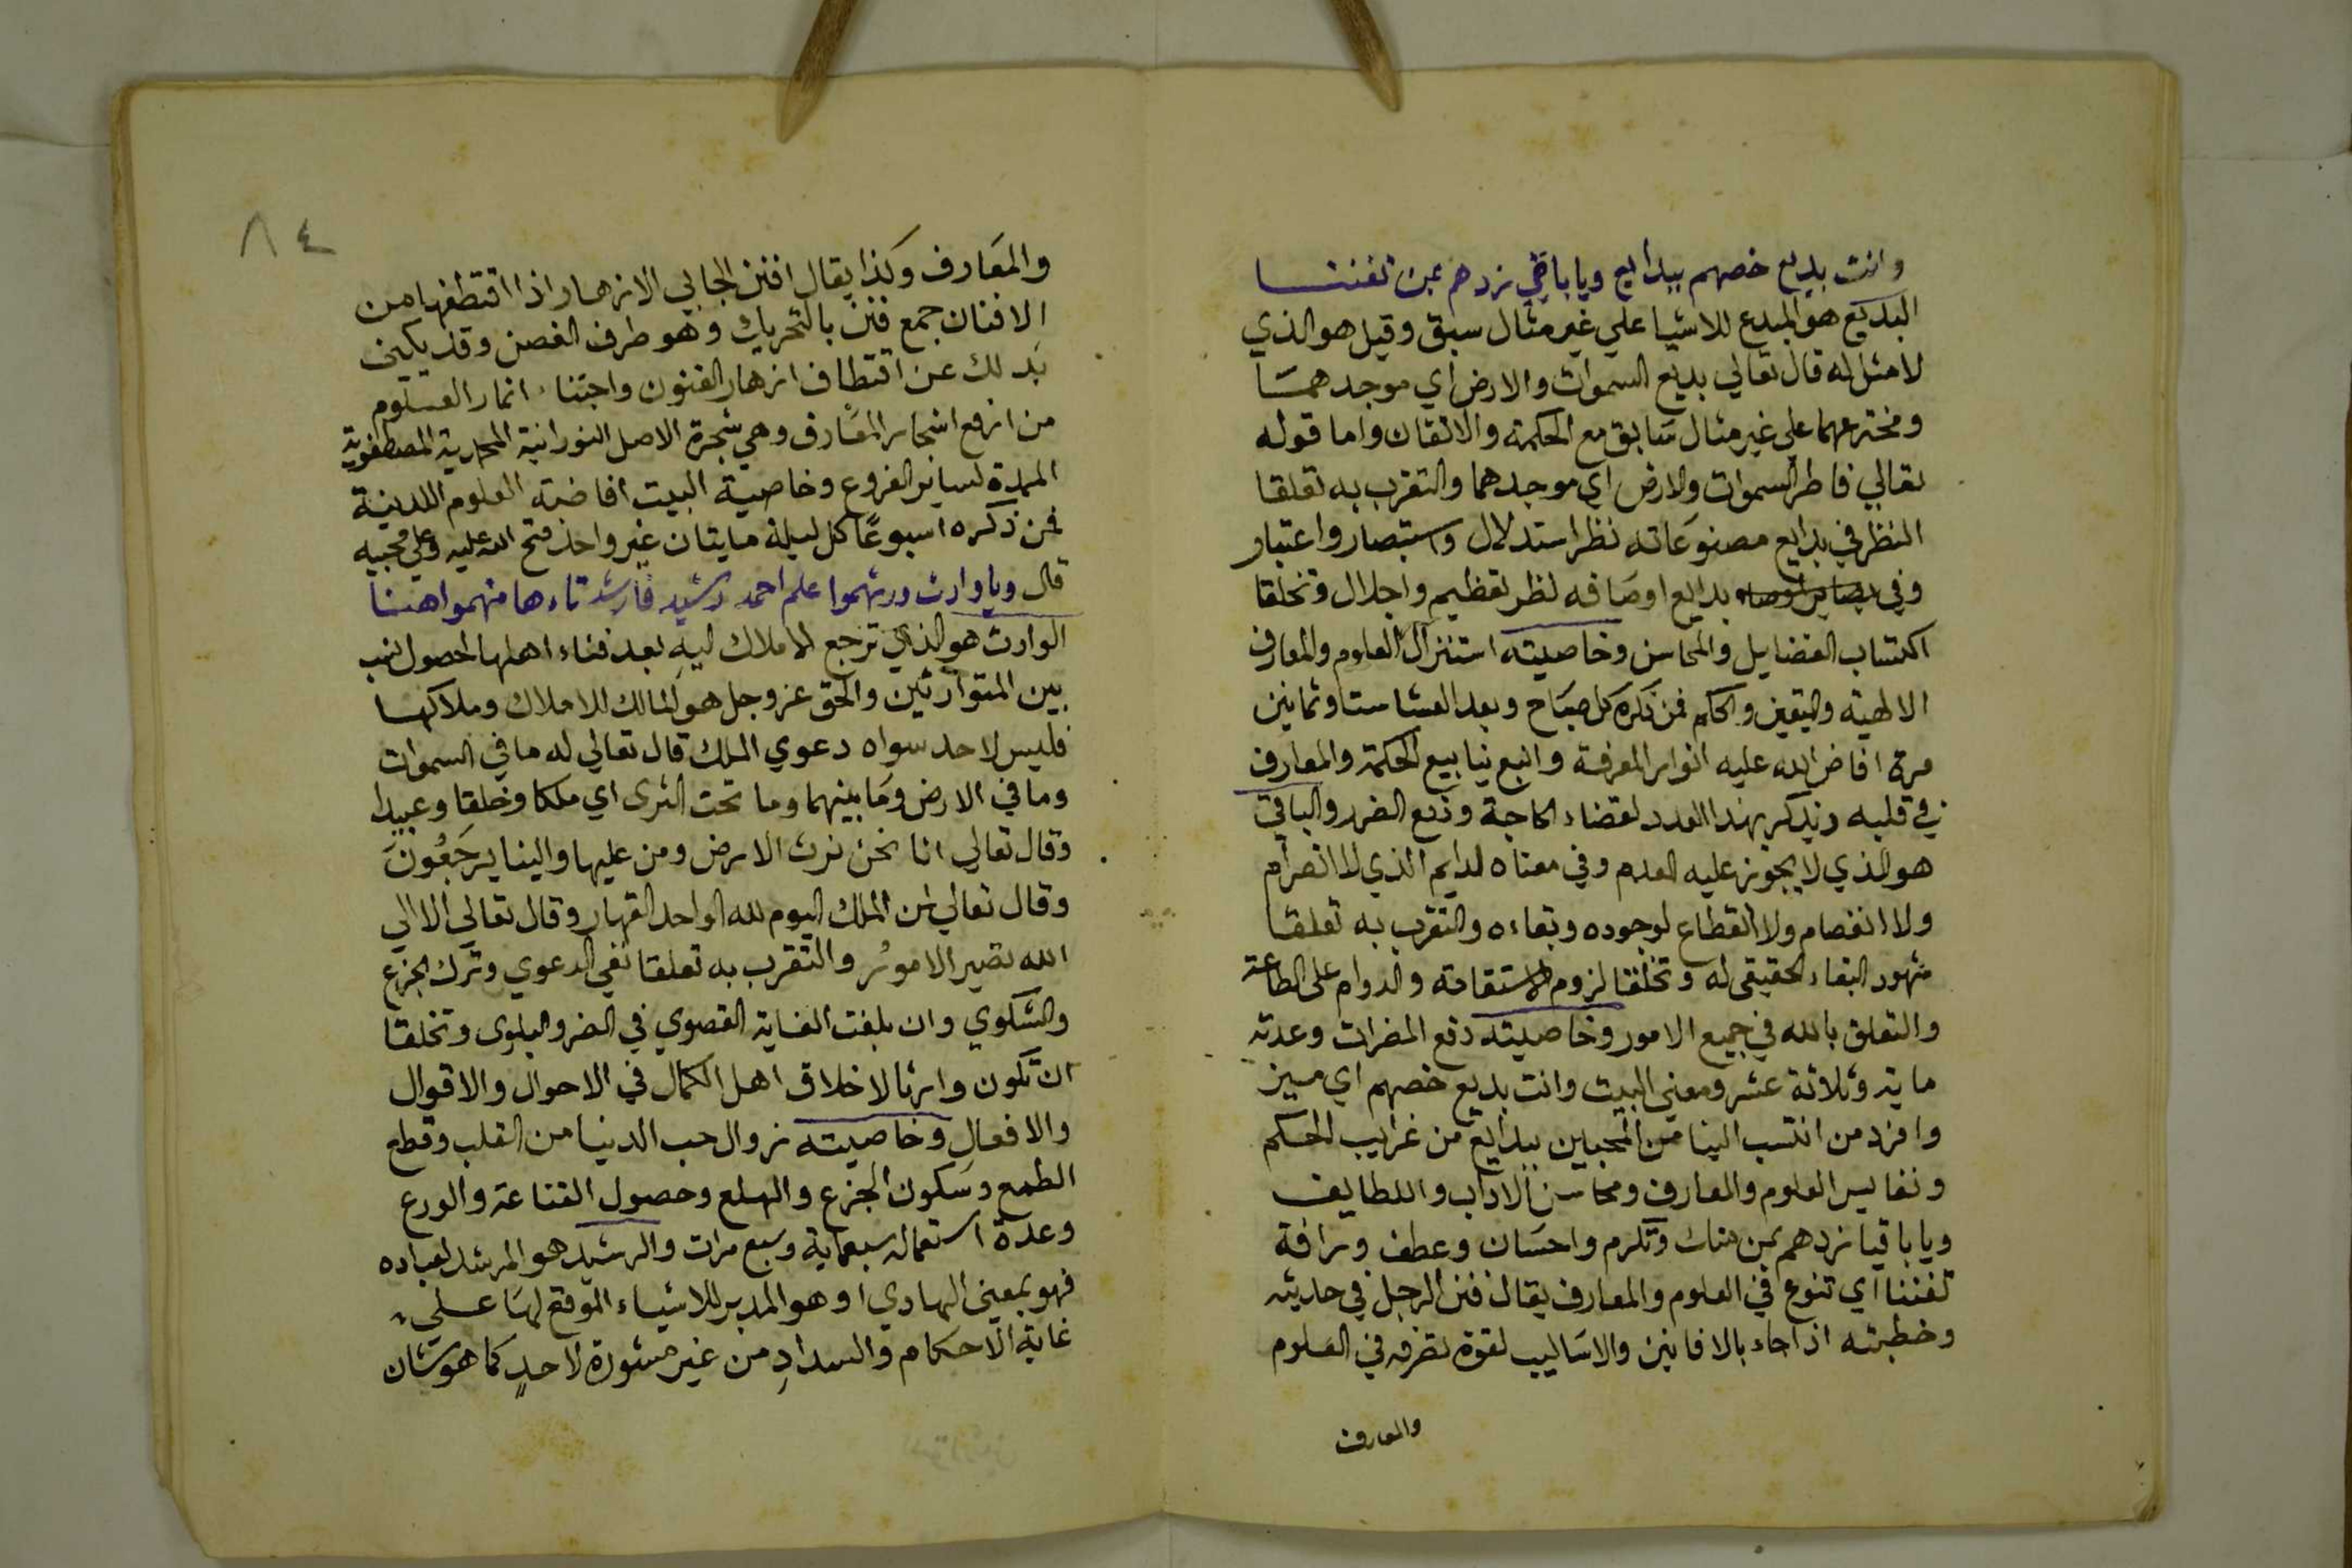 وانت بديع خصهم ببدايع ويا باقي زدهم بمن تفننا
البديع هو المبدع للاشيا علي غير مثال سبق وقيل هو الذي
لا مثل له قال تعالي بديع السموات والارض اي موجدهما
ومخترعهما علي غير مثال سَابق مع الحكمة والاتقان واما قوله
تعالي فاطر السموات والارض اي موجدهما والتقرب به تعلقا
النظر في بدايع مصنوعَاته نظر استدلال واستبصار واعتبار
وفي بدايع اوصَافه نظر تعظيم واجلال وتخلقا
اكتساب الفضايل والمحاسن وخاصيته استنزال العلوم والمعارف
الالهية واليقين والحكم فمن ذكره كل صبَاح وبعد العشا ستا وثمانين
مرة افاض الله عليه انوار المعرفة وانبع ينابيع الحكمة والمعارف
في قلبه ويذكر بهذا العدد لقضاء الحاجة ودفع الضرر والباقي
هو الذي لا يجوز عليه العدم وفي معناه الدايم الذي لا انصرام
ولا انفصام ولا انقطاع لوجوده وبقاءه والتقرب به تعلقا
شهود البقاء الحقيقي له وتخلقا لزوم الاستقامة والدوام على الطاعة
والتعلق بالله في جميع الامور وخاصيته دفع المضرات وعدته
ماية وثلاثة عشر ومعني البيت وانت بديع خصهم اي ميز
وافرد من انتسب الينا من المحبين ببدايع من غرايب الحكم
ونفايس العلوم والمعارف ومحاسن الاداب واللطايف
ويا باقيا زدهم بمن منك وتكرم واحسَان وعطف ورافة
تفننا اي تنوع في العلوم والمعارف يقال فنن الرجل في حديثه
وخطبته اذا جاء بالافانين والاسَاليب لقوة تصرفه في العلوم
والمعارف
٨٤
والمعَارف وكذا يقال افنن الجاني الازهار اذا اقتطفها من
الافنان جمع فنن بالتحريك وهو طرف الغصن وقد يكني
بذلك عن اقتطاف ازهار الفنون واجتناء اثمار العلوم
من ارفع اشجار المعَارف وهي شجرة الاصل النورانية المحمدية المصطفوية
الممدة لساير الفروع وخاصية البيت افاضة العلوم اللدنية
فمن ذكره اسبوعًا كل ليلة مايتان غير واحد فتح الله عليه وعلي محبيه
قال ويا وارث ورثهموا علم احمد رشيد فارشد تاءها منهموا هنا
الوارث هو الذي ترجع الاملاك اليه بعد فناء اهلها لحصول نسب
بين المتوارثين والحق عز وجل هو المالك للاملاك وملاكها
فليس لاحد سواه دعوي الملك قال تعالي له ما في السموات
وما في الارض ومَا بينهما وما تحت الثرى اي ملكا وخلقا وعبيدا
وقال تعالي انا نحن نرث الارض ومن عليها والينا يرجَعُونَ
وقال تعالي لمن الملك اليوم لله الواحد القهار وقال تعالي الا الي
الله تصير الامورُ والتقرب به تعلقا نفي الدعوي وترك الجزع
والشكوي وان بلغت الغاية القصوي في الضر والبلوى وتخلقا
ان تكون وارثا لاخلاق اهل الكمال في الاحوال والاقوال
والافعال وخاصيته زوال حب الدنيا من القلب وقطع
الطمع وسكون الجزع والهلع وحصول القناعة والورع
وعدة استعماله سبعماية وسبع مرات والرشيد هو المرشد لعباده
فهو بمعني الهادي او هو المدبر للاشياء الموقع لهَا علي
غاية الاحكام والسدادِ من غير مشورة لاحدٍ كما هو شان